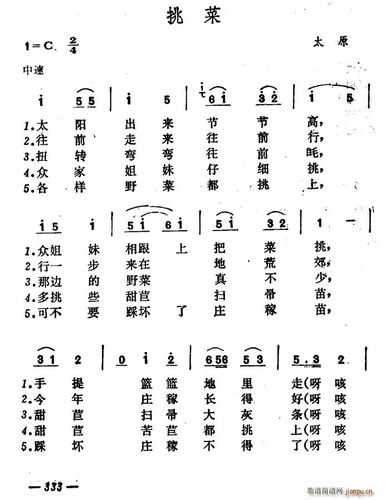 挑菜
1=C 2/4
太原
中速
i 55 i 5 65 6i 3·2 i 5
1.太阳出来节节高,
2.往前走来往前行,
3.扭转弯弯往前眊,
4.众家姐妹仔细挑,
5.各样野菜都挑上,
1.众姐妹相跟上把菜挑,
2.行一步来在地荒郊,
3.那边的野菜真不少,
4.多挑些甜苣扫帚苗,
5.可不要踩坏了庄稼苗,
31 2 0i 2 6 656 5·3 5·3 2
1.手提篮篮地里走(呀咳
2.今年庄稼长得好(呀咳
3.甜苣扫帚大灰条(呀咳
4.甜苣苦苣都挑上(呀咳
5.踩坏庄稼不得了(呀咳
— 333 —
歌谱简谱网
jianpu.cn